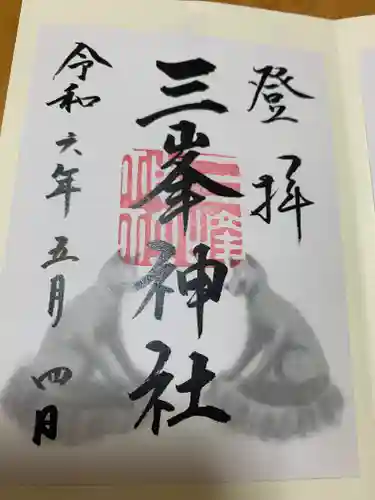 登拝
三峯神社
令和六年五月四月